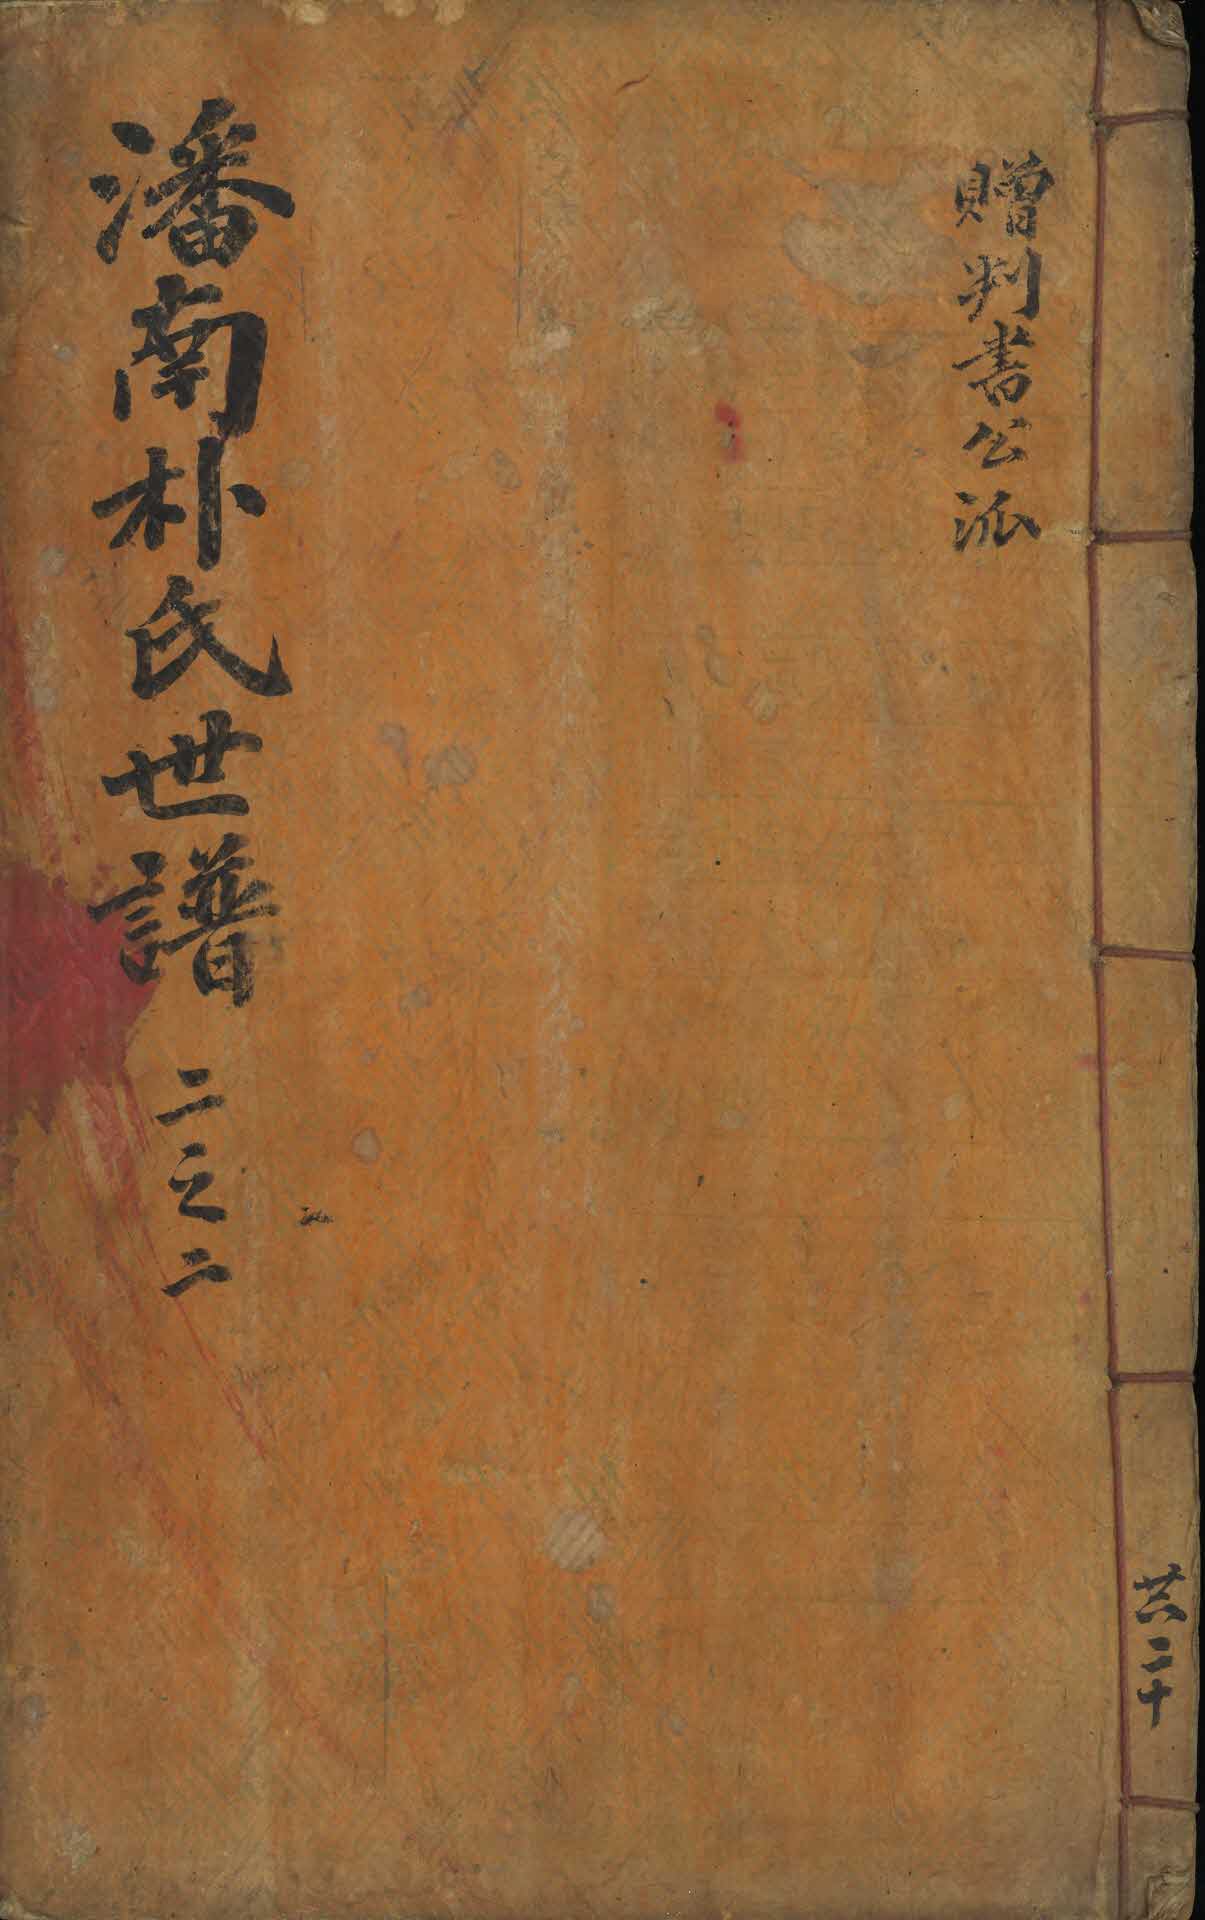 贈判書公派
潘南朴氏世譜 二之二
共二十